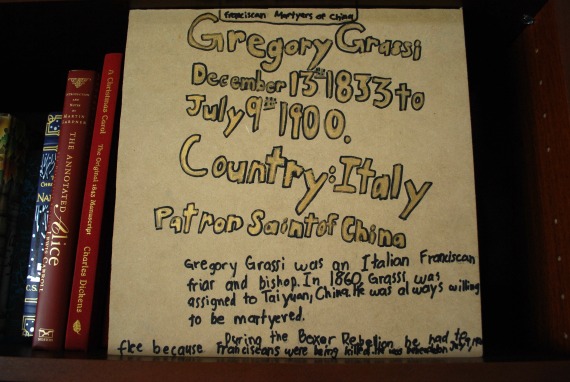 Franciscan Martyrs of China
Gregory Grassi
December 13th 1833 to
July 9th 1900.
Country: Italy
Patron Saint of China
Gregory Grassi was an Italian Franciscan
friar and bishop. In 1860 Grassi was
assigned to Taiyuan, China. He was always willing
to be martyered.
During the Boxer Rebelion he had to
flee because Franciscans were being killed. He was July 9,
THE ANNOTATED Alice
MARTIN GARDNER
A Christmas Carol The Original 1843 Manuscript Charles Dickens
C.S.